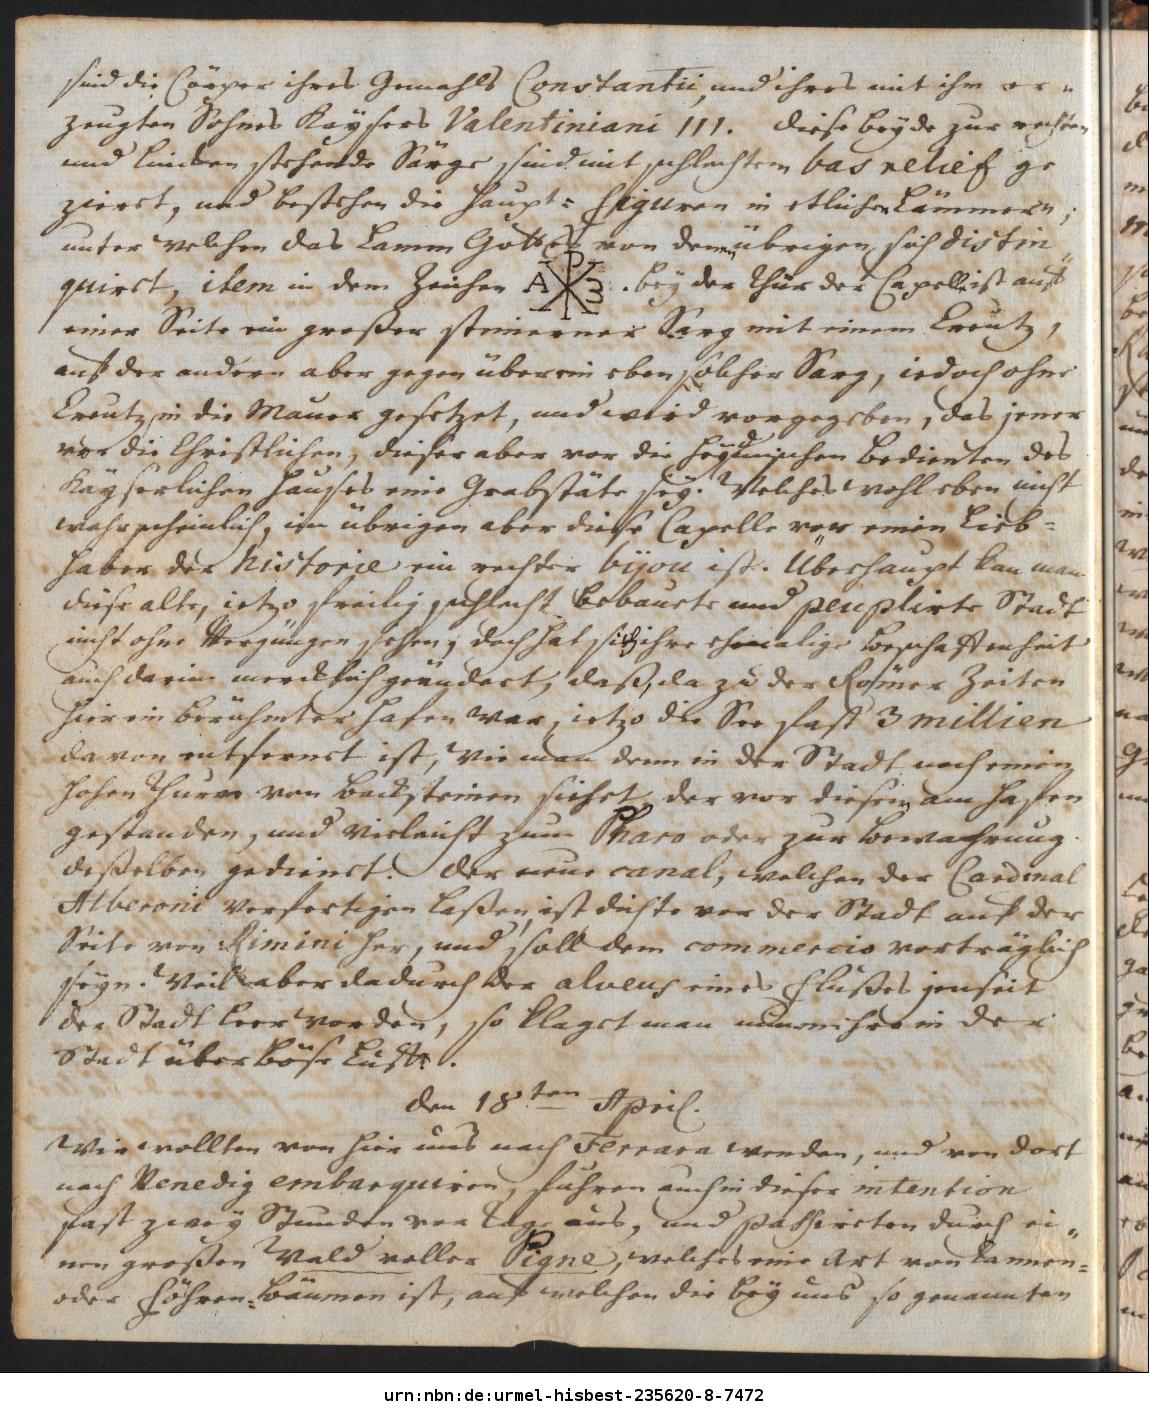 sind die Cörper ihres Gemahls Constantii, und ihres mit ihm er„
zeugten Sohnes Kaysers Valentiniani III. diese beyde zur rechten
und lincken stehende Särge sind mit schlechtem bas relief ge
zieret, und bestehen die Haupt= Figuren in etlichen Lämmern,
unter welchen das Lamm Gottes von denen übrigen sich distin„
guiret, item in dem Zeichen A ☧ ω. bey der Thür der Capelle ist auf
einer Seite ein großer steinerner Sarg mit einem Creutz,
auf der andern aber gegen über ein eben solcher Sarg, iedoch ohne
Creutz, in die Mauer gesetzet, und wird vorgegeben, das jener
vor die Christlichen, dieser aber vor die heydnischen Bedienten des
Kayserlichen Hauses eine Grabstäte sey. Welches wohl eben nicht
wahrscheinlich, im übrigen aber diese Capelle vor einen Lieb=
haber der historie ein rechter bijou ist. Überhaupt kan man
diese alte, ietzo freilig schlecht bebauete und peuplirte Stadt
nicht ohne Vergnügen sehen, doch hat sich ihre ehmalige Beschaffenheit
auch darinn mercklich geändert, daß, da zu der Römer Zeiten
hier ein berühmter Hafen war, ietzo die See fast 3 millien
davon entfernet ist, wie man denn in der Stadt noch einen
hohen Thurm von Backsteinen siehet, der vor diesem am Hafen
gestanden, und vieleicht zum Pharo oder zur Bewachrung
deßelben gedienet. Der neue canal, welchen der Cardinal
Alberoni verfertigen laßen, ist dichte vor der Stadt auf der
Seite von Rimini her, und soll dem commercio verträglich
seyn. Weil aber dadurch der alveus eines Flußes jenseit
der Stadt leer worden, so klaget man nunmehro in der
Stadt über böse Luft.
den 18ten April.
Wir wollten von hier uns nach Ferrara wenden, und von dort
nach Venedig embarquiren, fuhren auch in dieser intention
fast zwey Stunden vor Tage aus, und passireten durch ei„
nen großen Wald voller Pigne, welches eine Art von Tannen=
oder Föhren=Bäumen ist, auf welchen die bey uns so genannten
urn:nbn:de:urmel-hisbest-235620-8-7472